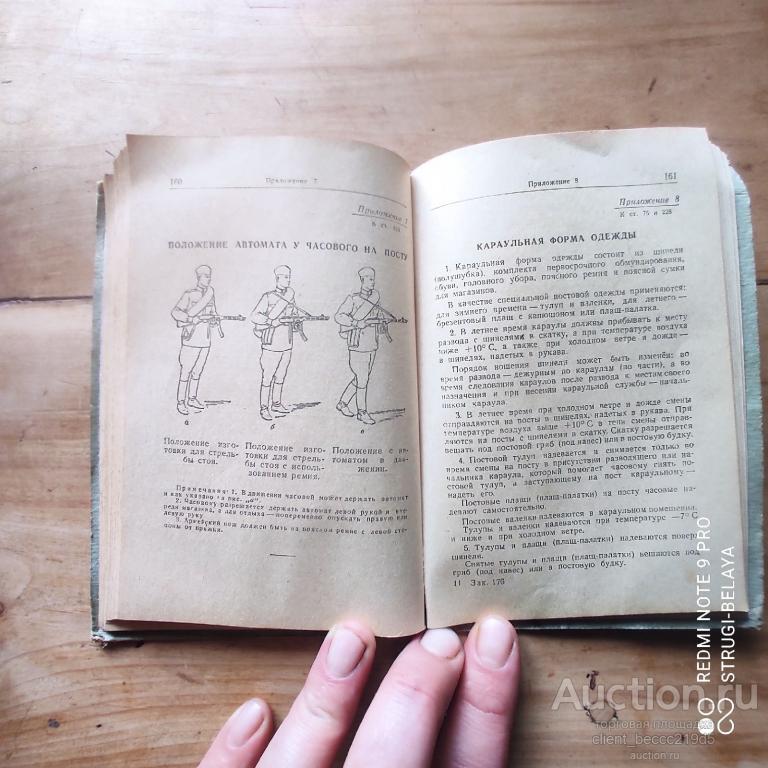 160
Приложение 7
Приложение 7
К ст.
ПОЛОЖЕНИЕ АВТОМАТА У ЧАСОВОГО НА ПОСТУ
а
б
в
Положение изго-
товки для стрель-
бы стоя.
Положение изго-
товки для стрель-
бы стоя с исполь-
зованием ремня.
Положение с ав-
томатом в дви-
жении.
Примечания: 1. В движении часовой может держать автомат
и как указано на рис. „а“.
2. Часовому разрешается держать автомат левой рукой и впе-
реди магазина, а для отдыха — попеременно опускать правую или
левую руку.
3. Армейский нож должен быть на поясном ремне с левой сто-
роны от пряжки.
Приложение 8
161
Приложение 8
К ст. 75 и 228
КАРАУЛЬНАЯ ФОРМА ОДЕЖДЫ
1. Караульная форма одежды состоит из шинели
(полушубка), комплекта первосрочного обмундирования,
обуви, головного убора, поясного ремня и поясной сумки
для магазинов.
В качестве специальной постовой одежды применяются:
для зимнего времени — тулуп и валенки, для летнего —
брезентовый плащ с капюшоном или плащ-палатка.
2. В летнее время караулы должны прибывать к месту
развода с шинелями в скатку, а при температуре воздуха
ниже +10° С, а также при холодном ветре и дожде —
в шинелях, надетых в рукава.
Порядок ношения шинели может быть изменён: во
время развода — дежурным по караулам (по части), а во
время следования караулов после развода к местам своего
назначения и при несении караульной службы — началь-
ником караула.
3. В летнее время при холодном ветре и дожде смены
отправляются на посты в шинелях, надетых в рукава. При
температуре воздуха выше +10° С в тени смены отправ-
ляются на посты с шинелями в скатку. Скатку разрешается
вешать под постовой гриб (под навес) или в постовую будку.
4. Постовой тулуп надевается и снимается только во
время смены на посту в присутствии разводящего или на-
чальника караула, который помогает часовому снять по-
стовой тулуп, а заступающему на пост караульному —
надеть его.
Постовые плащи (плащ-палатки) на посту часовые на-
девают самостоятельно.
Постовые валенки надеваются в караульном помещении.
Тулупы и валенки надеваются при температуре —7° С
и ниже и при холодном ветре.
5. Тулупы и плащи (плащ-палатки) надеваются поверх
шинели.
Снятые тулупы и плащи (плащ-палатки) вешаются под
гриб (под навес) или в постовую будку.
11 Зак. 176
REDMI NOTE 9 PRO
STRUGI-BELAYA
Auction.ru
торговая площадка
client_beccc219d5
auction.ru